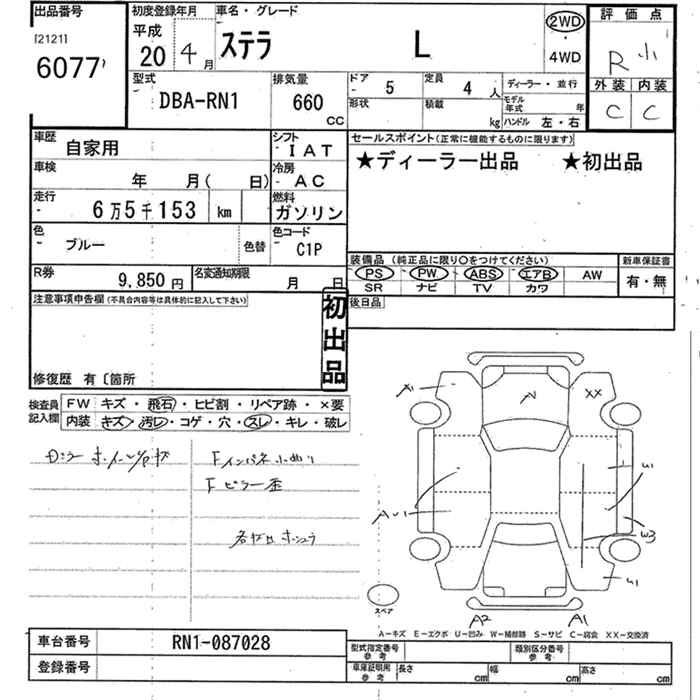 出品番号
[2121]
6077
初度登録年月
平成
20 4月
車名・グレード
ステラ L
2WD
・
4WD
評価点
R 小
外装 内装
C C
型式
DBA-RN1
排気量
660 CC
ドア
5
形状
定員
4 人
積載
kg
ディーラー・並行
モデル年式 年
ハンドル 左・右
車歴
自家用
シフト
IAT
車検
年 月( 日)
冷房
AC
走行
6万5千153 km
燃料
ガソリン
色
ブルー
色替
色コード
C1P
R券
9,850円
名変通知期限
月 日
セールスポイント(正常に機能するものに限ります)
★ディーラー出品 ★初出品
装備品 (純正品に限り○をつけてください)
PS PW ABS エアB AW
SR ナビ TV カワ
新車保証書
有・無
後日品
注意事項申告欄(不具合内容等は具体的に記入して下さい)
初出品
修復歴 有〔箇所
検査員記入欄
FW キズ・飛石・ヒビ割・リペア跡・×要
内装 キズ・汚レ・コゲ・穴・スレ・キレ・破レ
Fピラー歪
A1
XX
U1
W3
U1
A2
A1
スペア
A−キズ E−エクボ U−凹み W−補修跡 S−サビ C−腐食 XX−交換済
車台番号
RN1-087028
登録番号
型式指定番号 参考
類別区分番号 参考
車庫証明用 参考
長さ cm
幅 cm
高さ cm